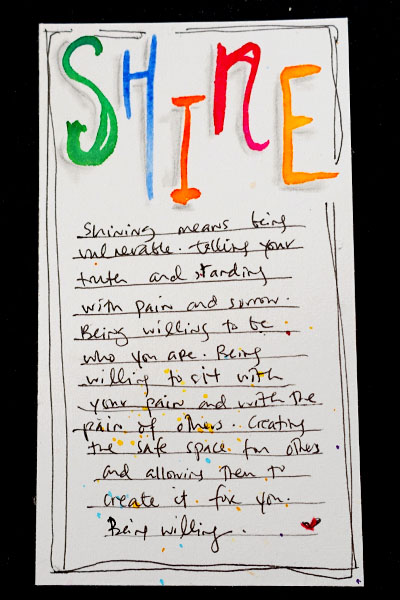 SHINE
Shining means being
vulnerable. telling your
truth and standing
with pain and sorrow.
Being willing to be
who you are. Being
willing to sit with
your pain and with the
pain of others. Creating
the safe space for others
and allowing them to
create it for you.
Being willing.